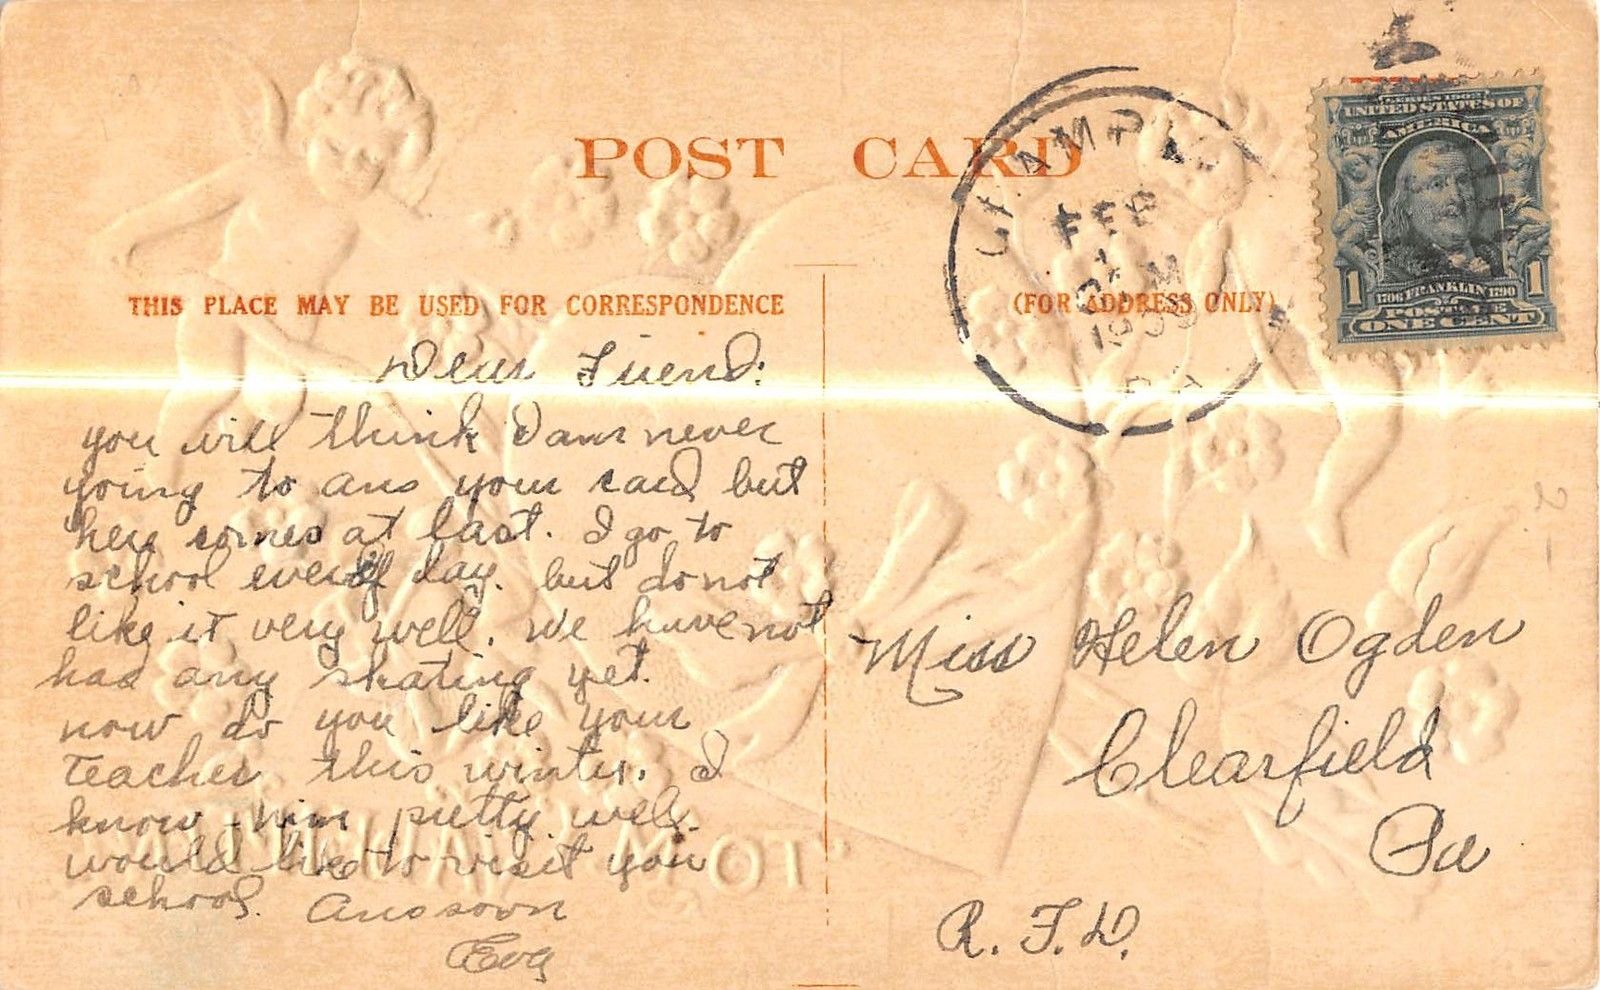 POST CARD
THIS PLACE MAY BE USED FOR CORRESPONDENCE
(FOR ADDRESS ONLY)
FEB
1909
PA
SERIES 1902
UNITED STATES OF
AMERICA
1 1
1706 FRANKLIN 1790
POSTAGE
ONE CENT
Dear Friend:
you will think I am never
going to ans your card but
here comes at last. I go to
school every day. but do not
like it very well. We have not
had any skating yet.
now do you like your
teacher this winter. I
know him pretty well.
would like to visit your
school. Ans soon
Miss Helen Ogden
Clearfield
Pa
R.F.D.
TO MY VALENTINE